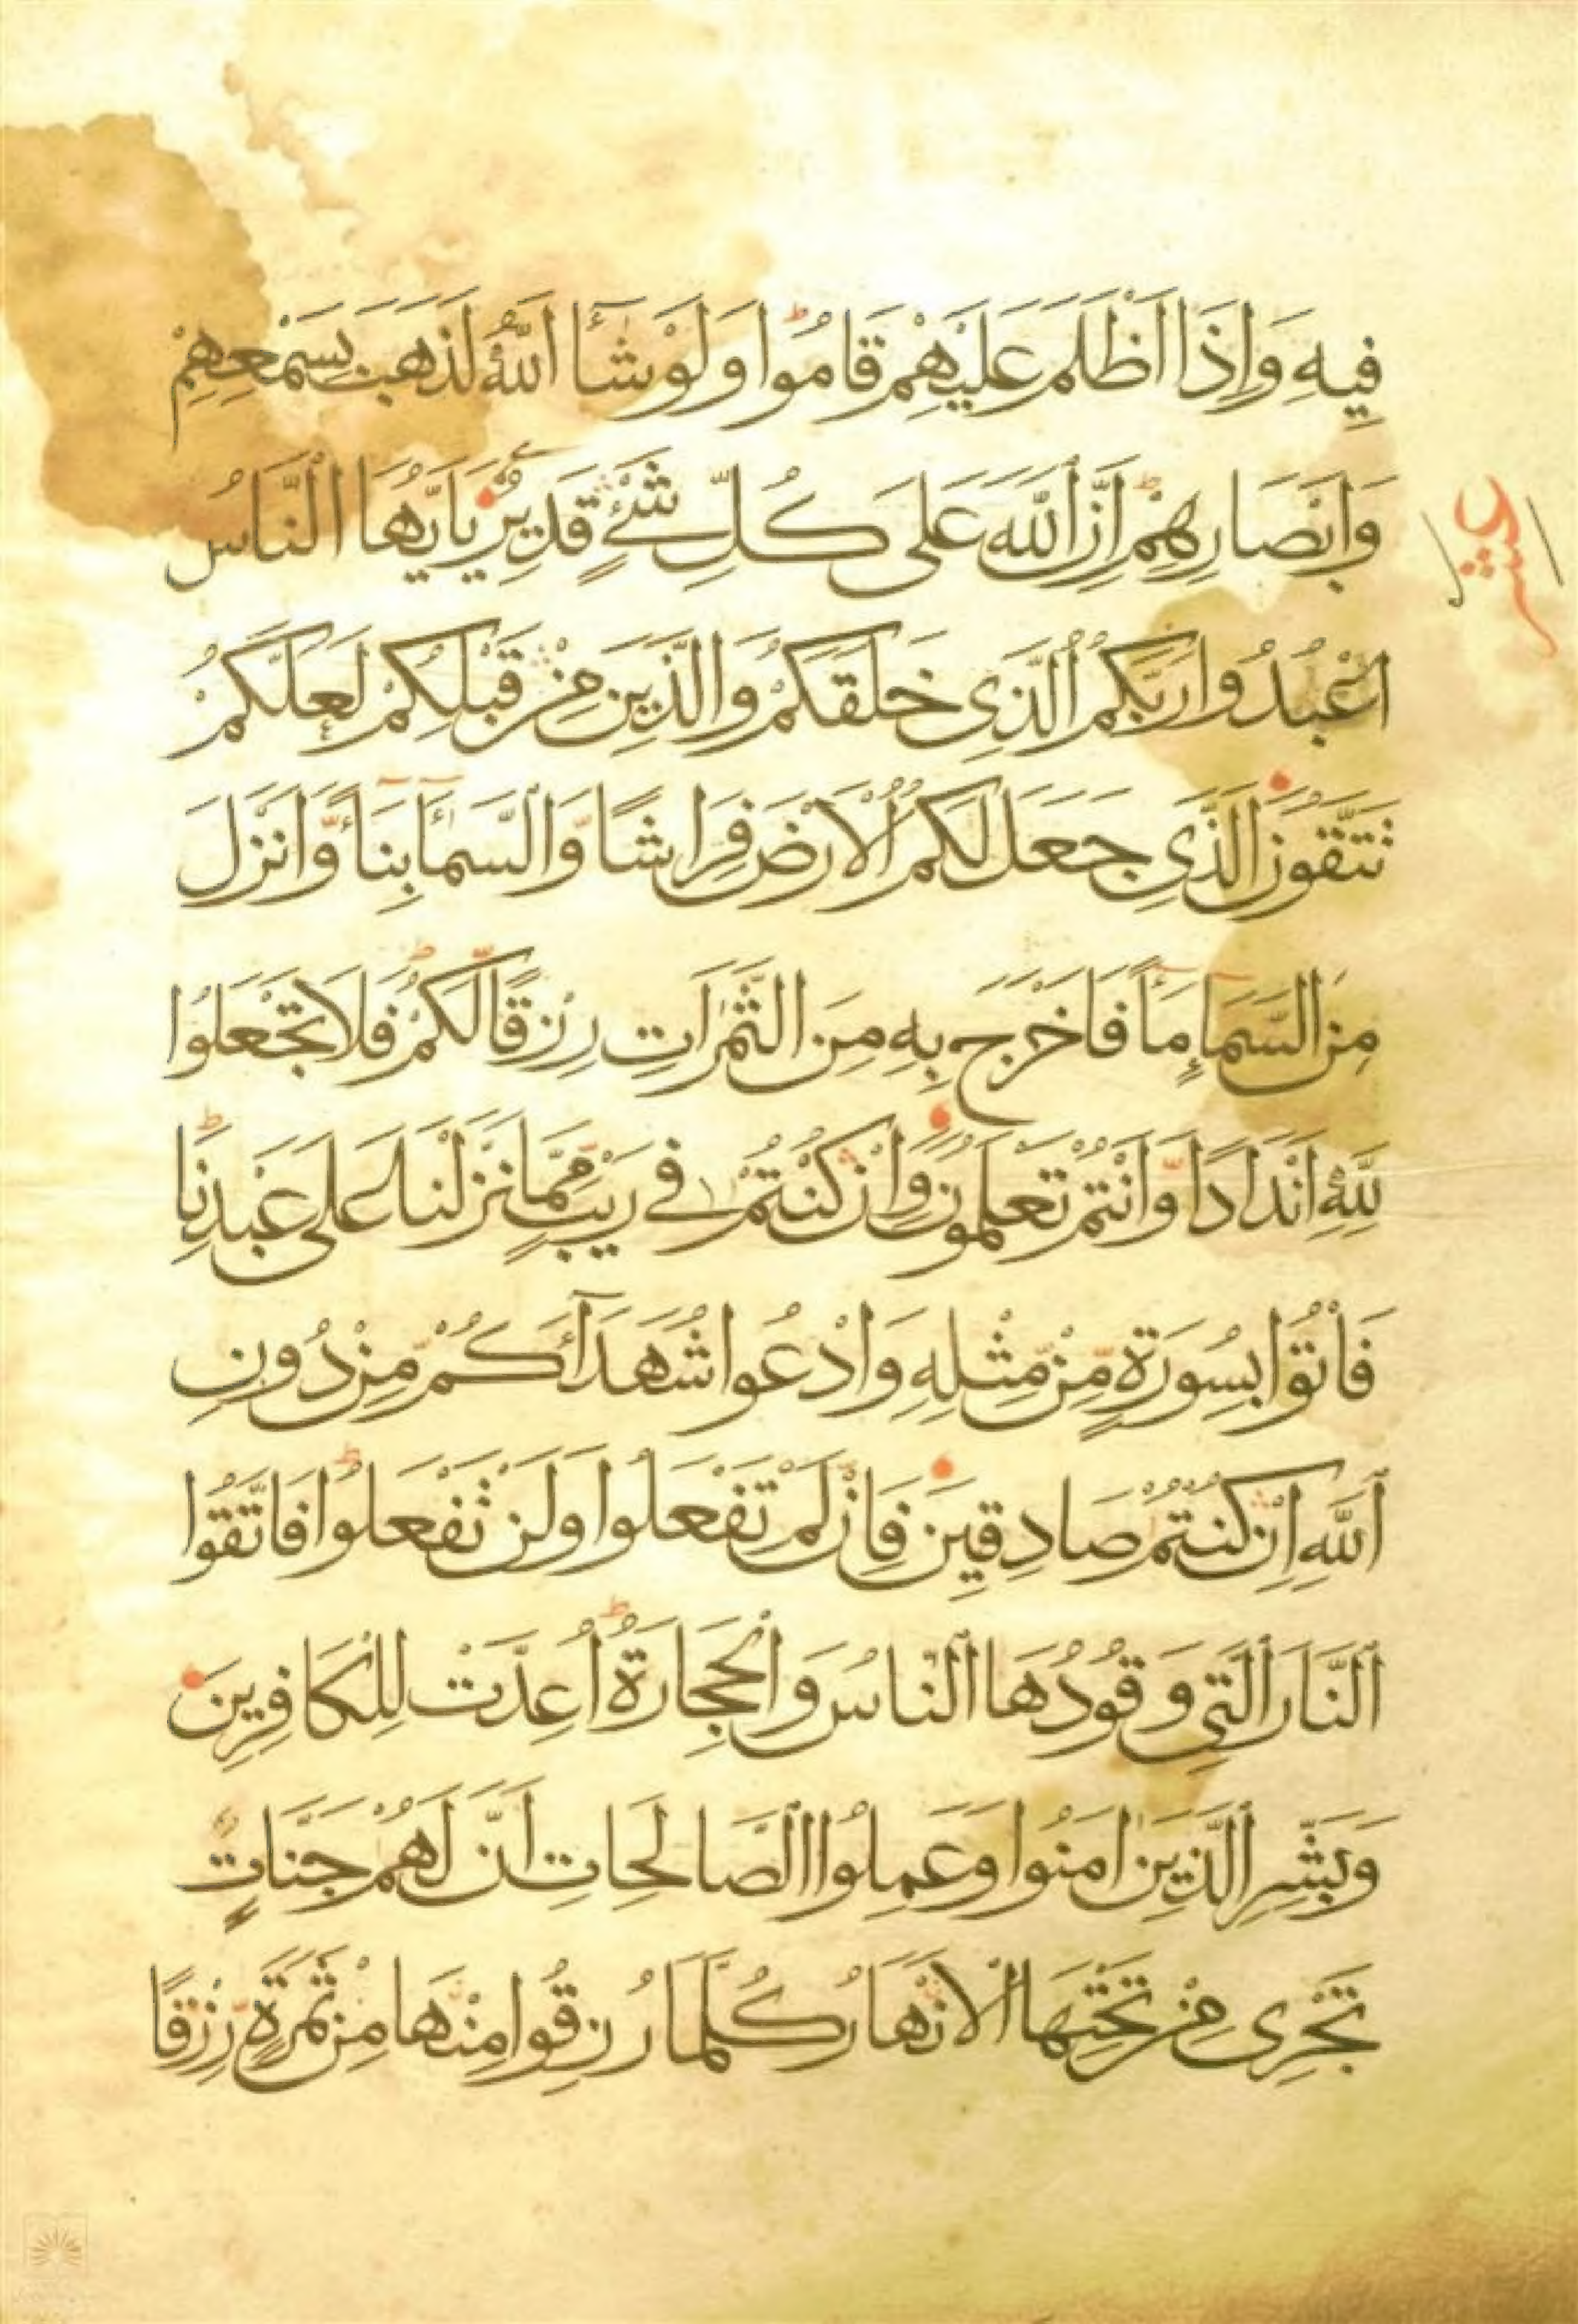 فِيهِ وَاِذَا اَظْلَمَ عَلَيْهِمْ قَامُوا وَلَوْ شَآءَ اللّٰهُ لَذَهَبَ بِسَمْعِهِمْ
وَاَبْصَارِهِمْ اِنَّ اللّٰهَ عَلٰى كُلِّ شَيْءٍ قَدِيرٌ يَا اَيُّهَا النَّاسُ
عشر
اعْبُدُوا رَبَّكُمُ الَّذِي خَلَقَكُمْ وَالَّذِينَ مِنْ قَبْلِكُمْ لَعَلَّكُمْ
تَتَّقُونَ الَّذِي جَعَلَ لَكُمُ الْاَرْضَ فِرَاشًا وَّالسَّمَآءَ بِنَآءً وَّاَنْزَلَ
مِنَ السَّمَآءِ مَآءً فَاَخْرَجَ بِهِ مِنَ الثَّمَرَاتِ رِزْقًا لَّكُمْ فَلَا تَجْعَلُوا
لِلّٰهِ اَنْدَادًا وَّاَنْتُمْ تَعْلَمُونَ وَاِنْ كُنْتُمْ فِي رَيْبٍ مِّمَّا نَزَّلْنَا عَلٰى عَبْدِنَا
فَاْتُوا بِسُورَةٍ مِّنْ مِّثْلِهِ وَادْعُوا شُهَدَآءَكُمْ مِّنْ دُونِ
اللّٰهِ اِنْ كُنْتُمْ صَادِقِينَ فَاِنْ لَّمْ تَفْعَلُوا وَلَنْ تَفْعَلُوا فَاتَّقُوا
النَّارَ الَّتِي وَقُودُهَا النَّاسُ وَالْحِجَارَةُ اُعِدَّتْ لِلْكَافِرِينَ
وَبَشِّرِ الَّذِينَ اٰمَنُوا وَعَمِلُوا الصَّالِحَاتِ اَنَّ لَهُمْ جَنَّاتٍ
تَجْرِي مِنْ تَحْتِهَا الْاَنْهَارُ كُلَّمَا رُزِقُوا مِنْهَا مِنْ ثَمَرَةٍ رِّزْقًا